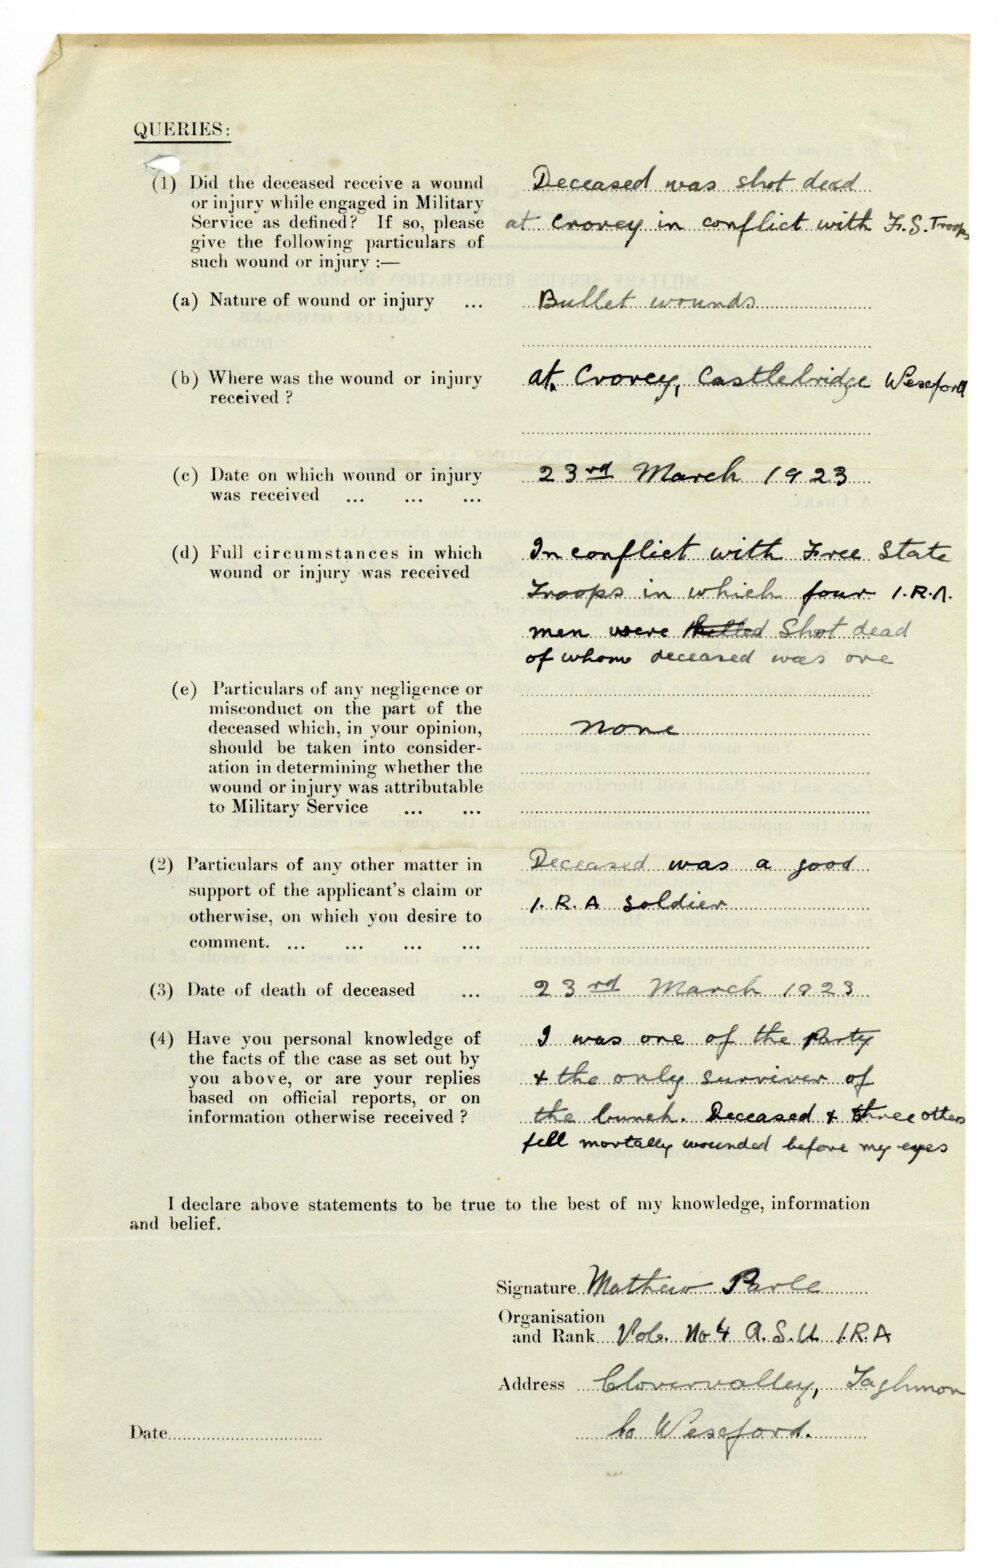 QUERIES:
(1) Did the deceased receive a wound
or injury while engaged in Military
Service as defined? If so, please
give the following particulars of
such wound or injury :—
Deceased was shot dead
at Crorey in conflict with F.S. Troops
(a) Nature of wound or injury ...
Bullet wounds
(b) Where was the wound or injury
received ?
at Crorey, Castlebridge Wexford
(c) Date on which wound or injury
was received ... ... ...
23rd March 1923
(d) Full circumstances in which
wound or injury was received
In conflict with Free State
Troops in which four I.R.A.
men were Shot dead
of whom deceased was one
(e) Particulars of any negligence or
misconduct on the part of the
deceased which, in your opinion,
should be taken into consider-
ation in determining whether the
wound or injury was attributable
to Military Service ... ...
none
(2) Particulars of any other matter in
support of the applicant's claim or
otherwise, on which you desire to
comment. ... ... ... ...
Deceased was a good
I.R.A soldier
(3) Date of death of deceased ...
23rd March 1923
(4) Have you personal knowledge of
the facts of the case as set out by
you above, or are your replies
based on official reports, or on
information otherwise received ?
I was one of the Party
& the only surviver of
the bunch. Deceased & three others
fell mortally wounded before my eyes
I declare above statements to be true to the best of my knowledge, information
and belief.
Signature Mathew Parle
Organisation
and Rank Vol. No 4 A.S.U I.R.A
Address Clovervalley, Taghmon
Co Wexford.
Date